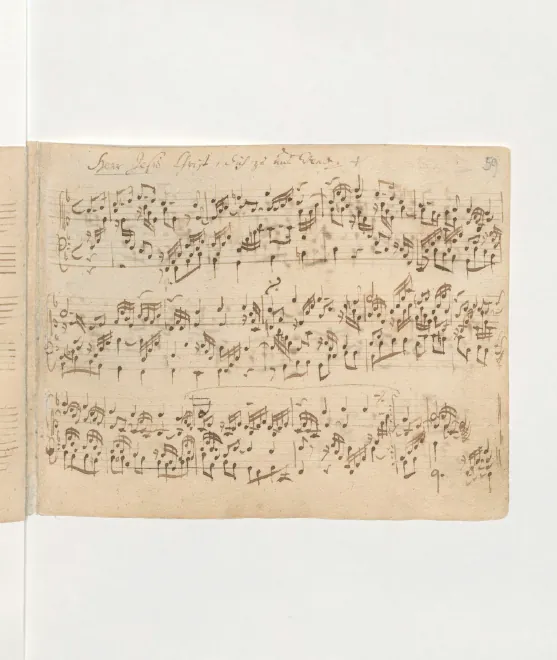 Herr Jesu Christ, dich zu uns wend. 59